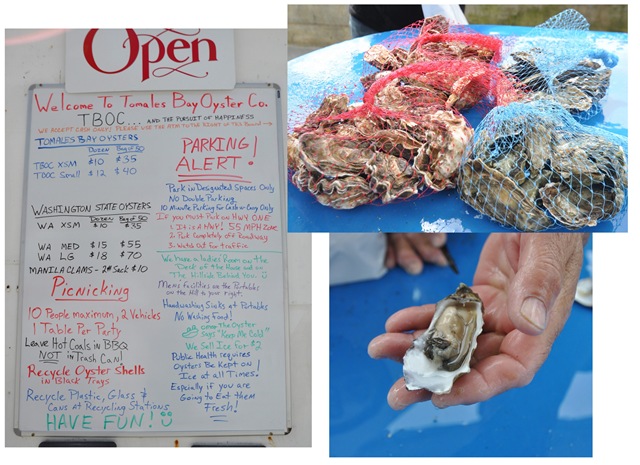 Open
Welcome To Tomales Bay Oyster Co.
TBOC... AND THE PURSUIT OF HAPPINESS
WE ACCEPT CASH ONLY! PLEASE USE THE ATM TO THE RIGHT OF THIS BOARD
TOMALES BAY OYSTERS
Dozen Bag of 50
TBOC XSM $10 $35
TBOC Small $12 $40
WASHINGTON STATE OYSTERS
Dozen Bag of 50
WA XSM $10 $35
WA MED $15 $55
WA LG $18 $70
MANILA CLAMS - 2# Sack $10
Picnicking
10 People maximum, 2 Vehicles
1 Table Per Party
Leave Hot Coals in BBQ
NOT in Trash Can!
Recycle Oyster Shells
in Black Trays
Recycle Plastic, Glass &
Cans At Recycling Stations
HAVE FUN!
PARKING
ALERT!
Park in Designated Spaces Only
No Double Parking
10 Minute Parking for Grab-n-Going Only
If you must Park on HWY ONE
1. It is A HWY! 55 MPH ZONE
2. Park Completely off Roadway
3. Watch Out for traffic
We have a Ladies Room on the
Deck of the House and on
The Hillside Behind You
Mens facilities are the Portables
on the Hill to your right.
Handwashing Sinks at Portables
No Washing Food!
the Oyster
says "Keep Me Cold"
We Sell Ice for $2
Public Health requires
Oysters Be Kept on
Ice at all Times.
Especially if you are
Going to Eat them
Fresh!